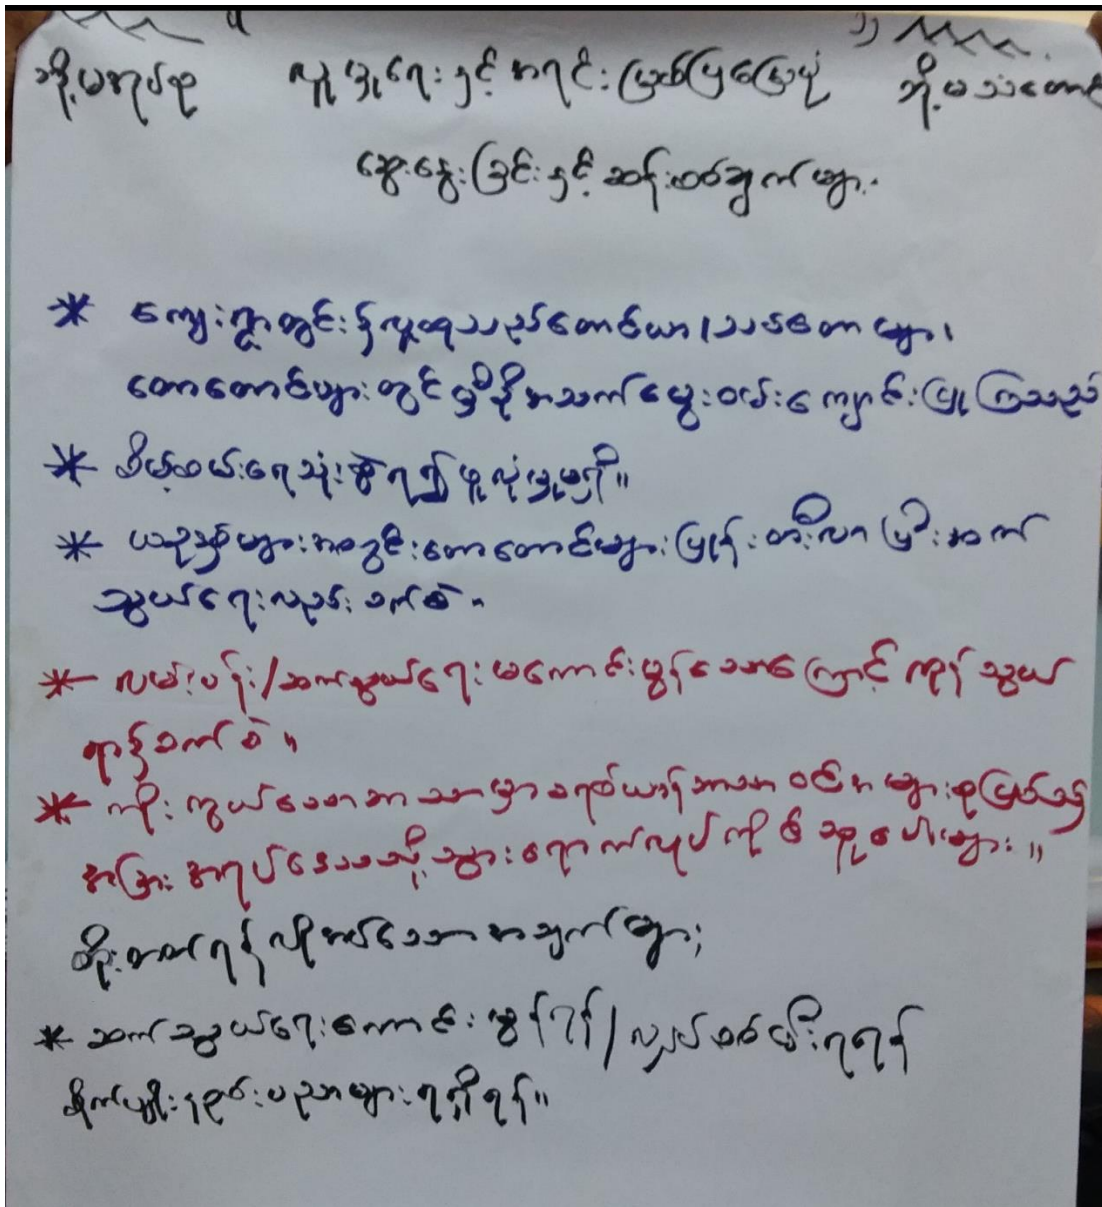 လူမှုရေးနှင့်အရင်းမြစ်ပြမြေပုံ
ဆွေးနွေးခြင်းနှင့်ဆန်းစစ်ချက်များ
* ကျေးရွာတွင်းရှိလူထုသည်တောင်ယာ၊သစ်တောများ၊
တောတောင်များတွင်မှီခိုအသက်မွေးဝမ်းကျောင်းပြုကြသည်
* စိမ့်စမ်းရေသုံးစွဲရ၍ဖူလုံမှုမရှိ။
* ယခုနှစ်များအတွင်းတောတောင်များပြုန်းတီးလာပြီးဆက်
သွယ်ရေးလည်းခက်ခဲ။
* လမ်းပန်း/ဆက်သွယ်ရေးမကောင်းမွန်သောကြောင့်ကုန်သွယ်
ရန်ခက်ခဲ။
* ကိုးကွယ်သောဘာသာမှာခရစ်ယာန်ဘာသာဝင်အများစုဖြစ်၍
အခြားအရပ်ဒေသသို့သွားရောက်လုပ်ကိုင်သူပေါများ။
တိုးတက်ရန်လိုအပ်သောအချက်များ;
* ဆက်သွယ်ရေးကောင်းမွန်ရန်/လျှပ်စစ်မီးရရန်
စိုက်ပျိုးနည်းပညာများရရှိရန်။